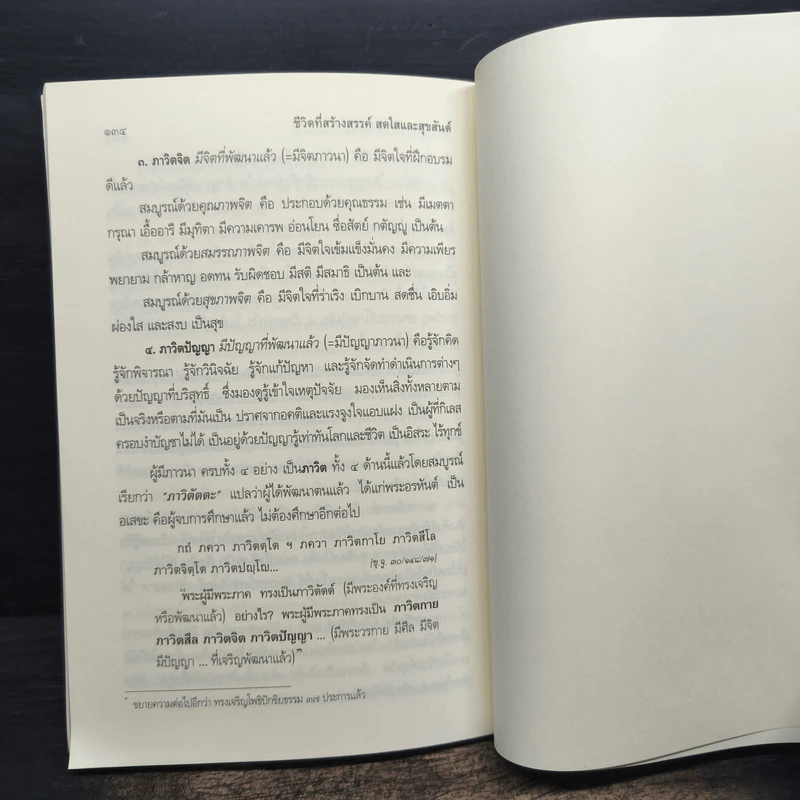 ๑๓๔ ชีวิตที่สร้างสรรค์ สดใสและสุขสันต์
๓. ภาวิตจิต มีจิตที่พัฒนาแล้ว (=มีจิตภาวนา) คือ มีจิตใจที่ฝึกอบรม
ดีแล้ว
สมบูรณ์ด้วยคุณภาพจิต คือ ประกอบด้วยคุณธรรม เช่น มีเมตตา
กรุณา เอื้ออารี มีมุทิตา มีความเคารพ อ่อนโยน ซื่อสัตย์ กตัญญู เป็นต้น
สมบูรณ์ด้วยสมรรถภาพจิต คือ มีจิตใจเข้มแข็งมั่นคง มีความเพียร
พยายาม กล้าหาญ อดทน รับผิดชอบ มีสติ มีสมาธิ เป็นต้น และ
สมบูรณ์ด้วยสุขภาพจิต คือ มีจิตใจที่ร่าเริง เบิกบาน สดชื่น เอิบอิ่ม
ผ่องใส และสงบ เป็นสุข
๔. ภาวิตปัญญา มีปัญญาที่พัฒนาแล้ว (=มีปัญญาภาวนา) คือรู้จักคิด
รู้จักพิจารณา รู้จักวินิจฉัย รู้จักแก้ปัญหา และรู้จักจัดทำดำเนินการต่างๆ
ด้วยปัญญาที่บริสุทธิ์ ซึ่งมองดูรู้เข้าใจเหตุปัจจัย มองเห็นสิ่งทั้งหลายตาม
เป็นจริงหรือตามที่มันเป็น ปราศจากอคติและแรงจูงใจแอบแฝง เป็นผู้ที่กิเลส
ครอบงำบัญชาไม่ได้ เป็นอยู่ด้วยปัญญารู้เท่าทันโลกและชีวิต เป็นอิสระ ไร้ทุกข์
ผู้มีภาวนา ครบทั้ง ๔ อย่าง เป็นภาวิต ทั้ง ๔ ด้านนี้แล้วโดยสมบูรณ์
เรียกว่า "ภาวิตัตตะ" แปลว่าผู้ได้พัฒนาตนแล้ว ได้แก่พระอรหันต์ เป็น
อเสขะ คือผู้จบการศึกษาแล้ว ไม่ต้องศึกษาอีกต่อไป
กถํ ภควา ภาวิตตฺโต ฯ ภควา ภาวิตกาโย ภาวิตสีโล
ภาวิตจิตฺโต ภาวิตปญฺโญ... [ขุ.จู. ๓๐/๑๔๘/๗๑]
"พระผู้มีพระภาค ทรงเป็นภาวิตัตต์ (มีพระองค์ที่ทรงเจริญ
หรือพัฒนาแล้ว) อย่างไร? พระผู้มีพระภาคทรงเป็น ภาวิตกาย
ภาวิตสีล ภาวิตจิต ภาวิตปัญญา ... (มีพระวรกาย มีศีล มีจิต
มีปัญญา ... ที่เจริญพัฒนาแล้ว)"*
* ขยายความต่อไปอีกว่า ทรงเจริญโพธิปักขิยธรรม ๓๗ ประการแล้ว